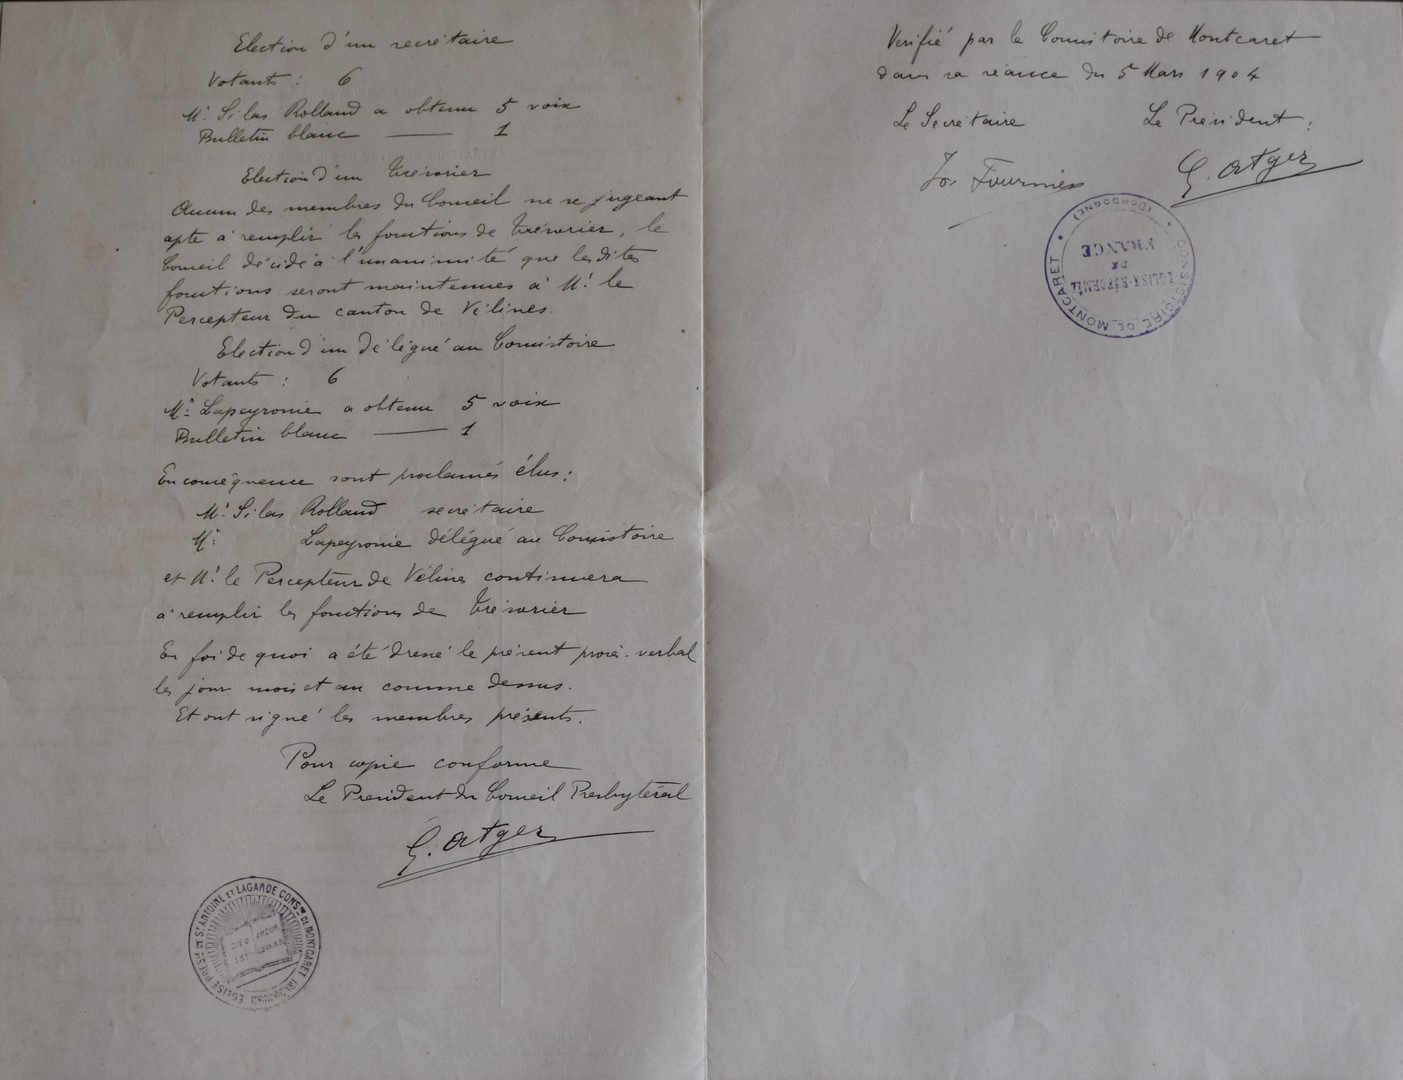 Election d'un secrétaire
Votants : 6
Mr. Silas Rolland a obtenu 5 voix
Bulletin blanc —— 1
Election d'un trésorier
Aucun des membres du Conseil ne se jugeant
apte à remplir les fonctions de trésorier, le
Conseil décide à l'unanimité que les dites
fonctions seront maintenues à Mr. le
Percepteur du canton de Vélines.
Election d'un délégué au Consistoire
Votants : 6
Mr. Lapeyronie a obtenu 5 voix
Bulletin blanc —— 1
En conséquence sont proclamés élus :
Mr. Silas Rolland secrétaire
Mr. Lapeyronie délégué au Consistoire
et Mr. le Percepteur de Vélines continuera
à remplir les fonctions de trésorier
En foi de quoi a été dressé le présent procès-verbal
les jour mois et an comme dessus.
Et ont signé les membres présents.
Pour copie conforme
Le Président du Conseil Presbytéral
G. Atger
EGLISE PRESne DE St ANTOINE ET LAGARDE CONSre DE MONTCARET
DIEU EST AMOUR
Verifié par le Consistoire de Montcaret
dans sa séance du 5 Mars 1904
Le Secrétaire Le Président :
Fournier G. Atger
CONSISTOIRE DE MONTCARET
(DORDOGNE)
EGLISE RÉFORMÉE
DE
FRANCE